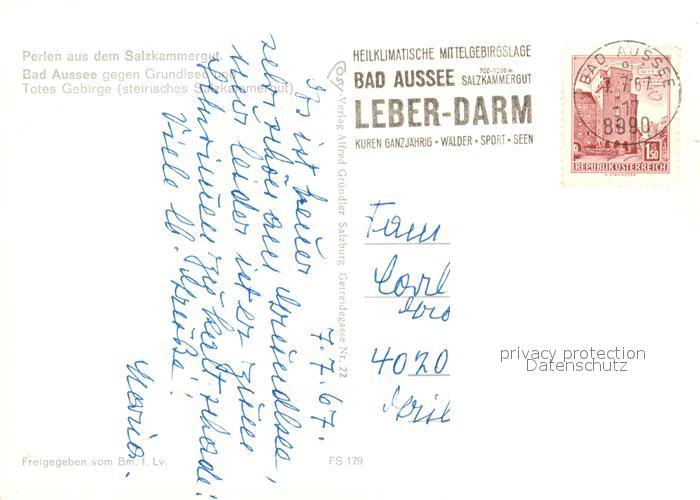 Perlen aus dem Salzkammergut
Bad Aussee gegen Grundlsee und
Totes Gebirge (steirisches Salzkammergut)
HEILKLIMATISCHE MITTELGEBIRGSLAGE
BAD AUSSEE 700-1200 m SALZKAMMERGUT
LEBER-DARM
KUREN GANZJÄHRIG • WÄLDER • SPORT • SEEN
BAD AUSSEE
7.67
8990
1.50
REPUBLIK ÖSTERREICH
Verlag Alfred Gründler Salzburg Getreidegasse Nr. 22
7.7.67.
Es ist heuer
sehr schön am Grundlsee,
nur leider ist er zum
Schwimmen zu kalt schade!
Viele lb. Grüße!
Maria.
Fam
Carl
4020
privacy protection
Datenschutz
Freigegeben vom Bm. f. Lv.
FS 179